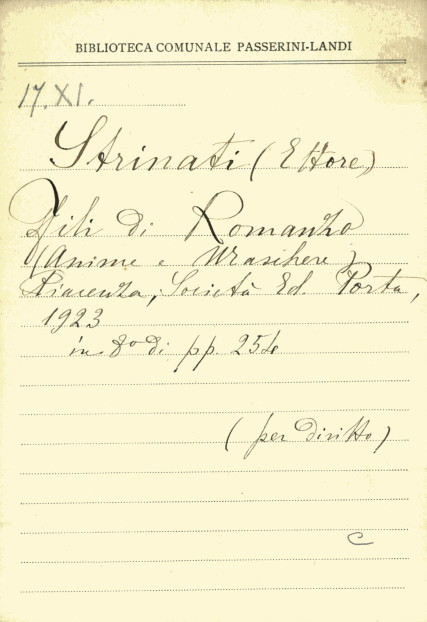 BIBLIOTECA COMUNALE PASSERINI-LANDI
17.XI.
Strinati (Ettore)
Fili di Romanzo
(Anime e Maschere)
Piacenza, Società Ed. Porta,
1923
in 8° di pp. 254
(per diritto)
C